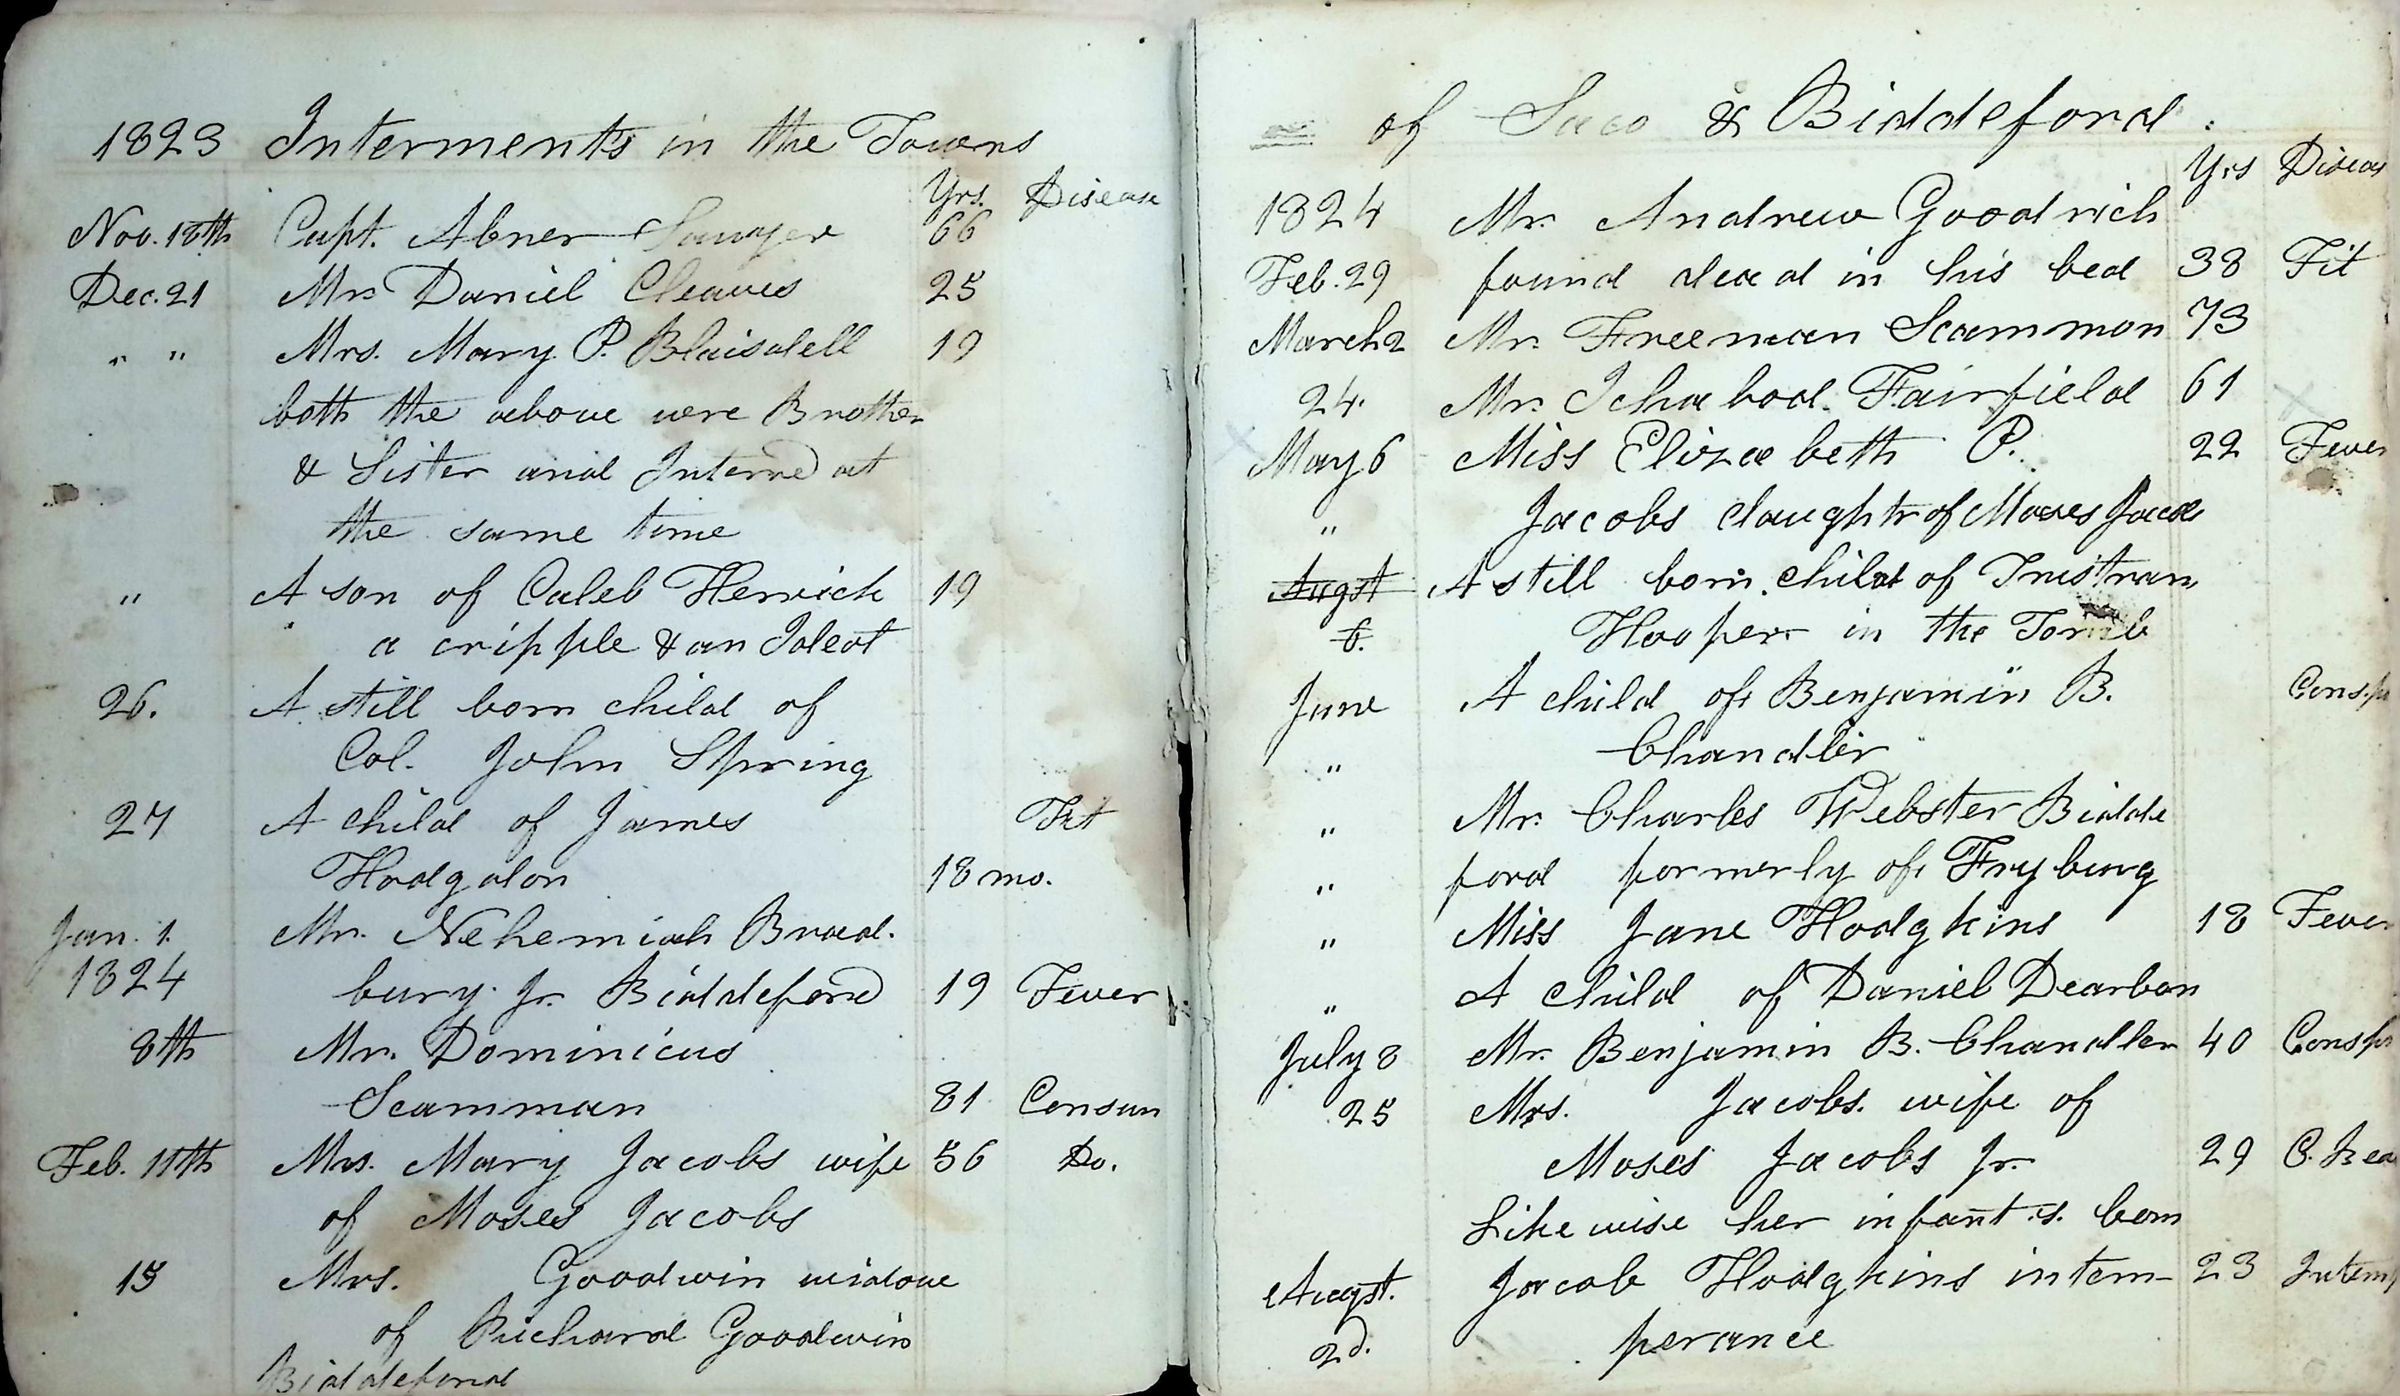 1823 Interments in the Towns
Yrs. Disease
Nov. 18th Capt. Abner Sawyer 66
Dec. 21 Mr. Daniel Cleaves 25
" " Mrs. Mary P. Blaisdell 19
both the above were Brother
& Sister and Interred at
the same time
" A son of Caleb Herrick 19
a cripple & an Ideot
26. A still born child of
Col. John Spring
27 A child of James Fit
Hodgdon 18 mo.
Jan. 1. Mr. Nehemiah Brad.
1824 bury Jr. Biddeford 19 Fever
8th Mr. Dominicus
Scamman 81 Consun
Feb. 11th Mrs. Mary Jacobs wife 56 Do.
of Moses Jacobs
15 Mrs. Goodwin widow
of Richard Goodwin
Biddeford
of Saco & Biddeford
Yrs Diseas
1824 Mr. Andrew Goodrich
Feb. 29 found dead in his bed 38 Fit
March 2 Mr. Freeman Scammon 73
24. Mr. Ichabod Fairfield 61
May 6 Miss Elizabeth P. 22 Fever
" Jacobs daughtr of Moses Jacobs
Augst A still born child of Tristram
6. Hooper in the Tomb
June A child of Benjamin B. Consp
" Chandler
" Mr. Charles Webster Bidde
" ford formerly of Fryburg
" Miss Jane Hodgkins 18 Fever
" A child of Daniel Dearborn
July 8 Mr. Benjamin B. Chandler 40 Consp
25 Mrs. Jacobs. wife of
Moses Jacobs Jr. 29 C. Bea
Likewise her infant s. born
Augst. Jacob Hodgkins intem- 23 Intemp
2d. perance